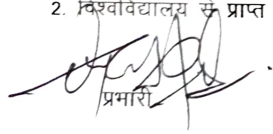 2. विश्वविद्यालय से प्राप्त
प्रभारी